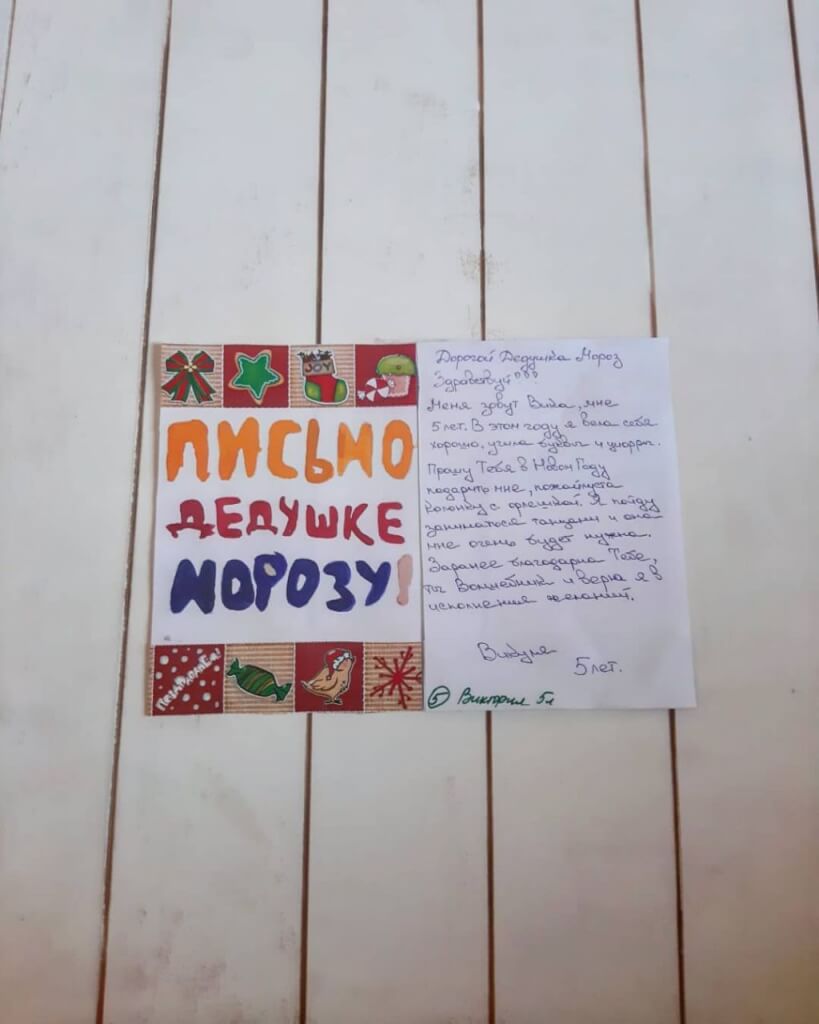 JOY
ПИСЬМО
ДЕДУШКЕ
МОРОЗУ!
Дорогой Дедушка Мороз
Здравствуй!!!
Меня зовут Вика, мне
5 лет. В этом году я вела себя
хорошо, учила буквы и цифры.
Прошу Тебя в Новом Году
подарить мне, пожалуйста
колонку с флешкой. Я пойду
заниматься танцами и она
мне очень будет нужна.
Заранее благодарна Тебе,
ты Волшебник и верю я в
исполнения желаний.
Викуля
5 лет.
5 Виктория 5л